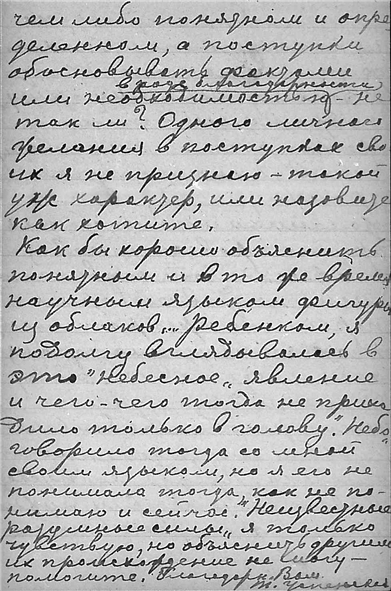 чем либо понятном и опре
деленном, а поступки
обосновывать фактами
в роде благодарности
или необходимостью – не
так ли? Одного личного
желания в поступках сво
их я не признаю – такой
уж характер, или назовите
как хотите.
Как бы хорошо объяснить
понятным и в то же время
научным языком фигуры
из облаков... Ребенком, я
подолгу вглядывалась в
это "небесное" явление
и чего-чего тогда не прихо
дило только в голову. "Небо"
говорило тогда со мной
своим языком, но я его не
понимала тогда, как не по-
нимаю и сейчас. "Неизвестные
разумные силы" я только
чувствую, но объяснить другим
их происхождение не могу –
помогите. Благодарн. Вам
Т. Успенская